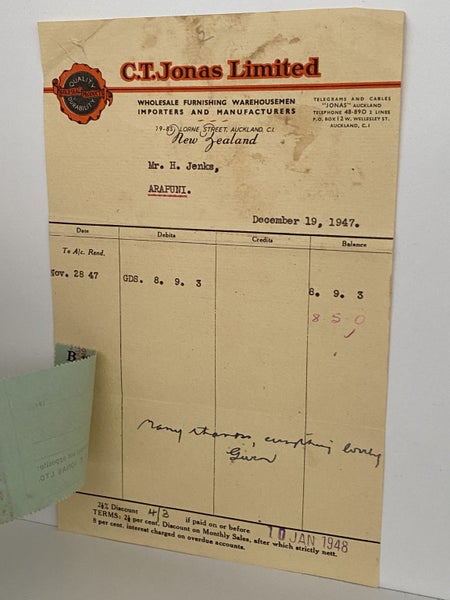 C.T. Jonas Limited
QUALITY
DURABILITY
WHOLESALE FURNISHING WAREHOUSEMEN
IMPORTERS AND MANUFACTURERS
79-83, LORNE STREET, AUCKLAND, C.I.
New Zealand
TELEGRAMS AND CABLES
"JONAS" AUCKLAND
TELEPHONE 48-890 3 LINES
P.O. BOX 12 W. WELLESLEY ST.
AUCKLAND, C.I
Mr. H. Jenks,
ARAPUNI.
December 19, 1947.
Date Debits Credits Balance
To A/c. Rend.
Nov. 28 47 GDS. 8. 9. 3 8. 9. 3
8 5 0
Many thanks, everything
Given
2½% Discount 4/3 if paid on or before 10 JAN 1948
TERMS: 2½ per cent. Discount on Monthly Sales, after which strictly nett.
8 per cent. interest charged on overdue accounts.
JONAS LTD.